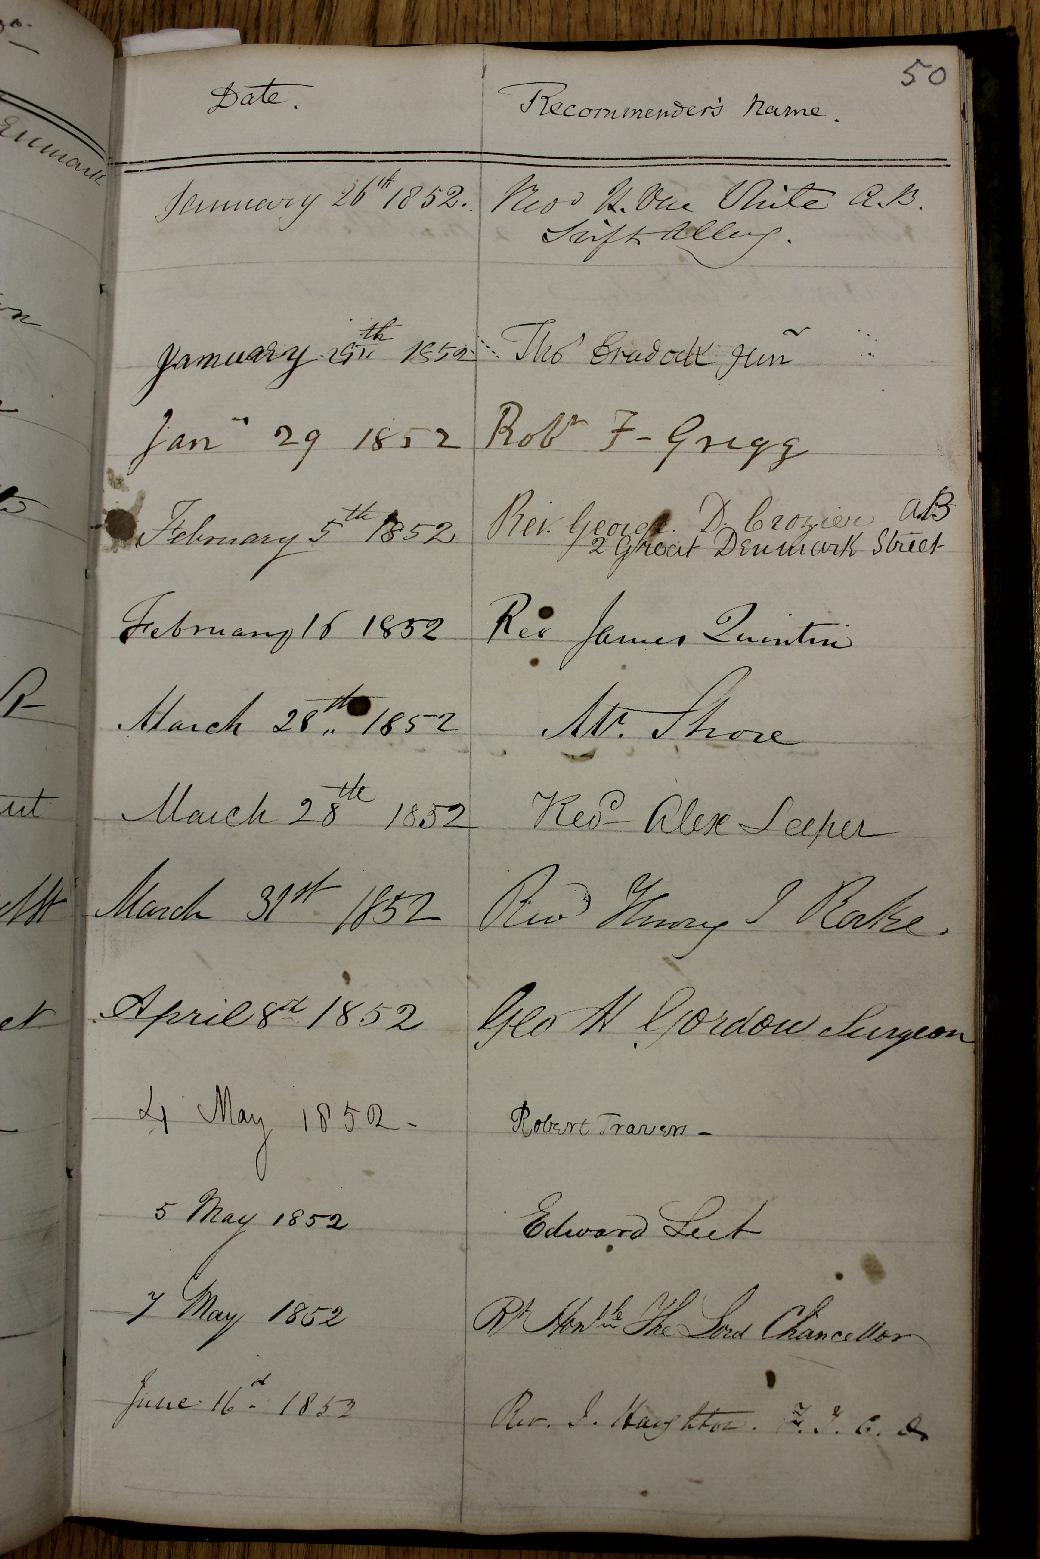 50
Date. Recommender's Name.
January 26th 1852. Revd H. Vere White A.B.
Swift's Alley.
January 29th 1852 Thos Cradock Junr
Jany 29 1852 Robt F- Gregg
February 5th 1852 Rev. George D. Crozier AB
2 Great Denmark Street
February 16 1852 Rev James Quintin
March 28th 1852 Mr. Shore
March 28th 1852 Revd Alex Leeper
March 31st 1852 Revd Henry J
April 8th 1852 Geo H Gordon Surgeon
4 May 1852. Robert Travers -
5 May 1852 Edward Leet
7 May 1852 Rt Honble The Lord Chancellor
June 16th 1852 Rev. S. Haughton. F.T.C.D.